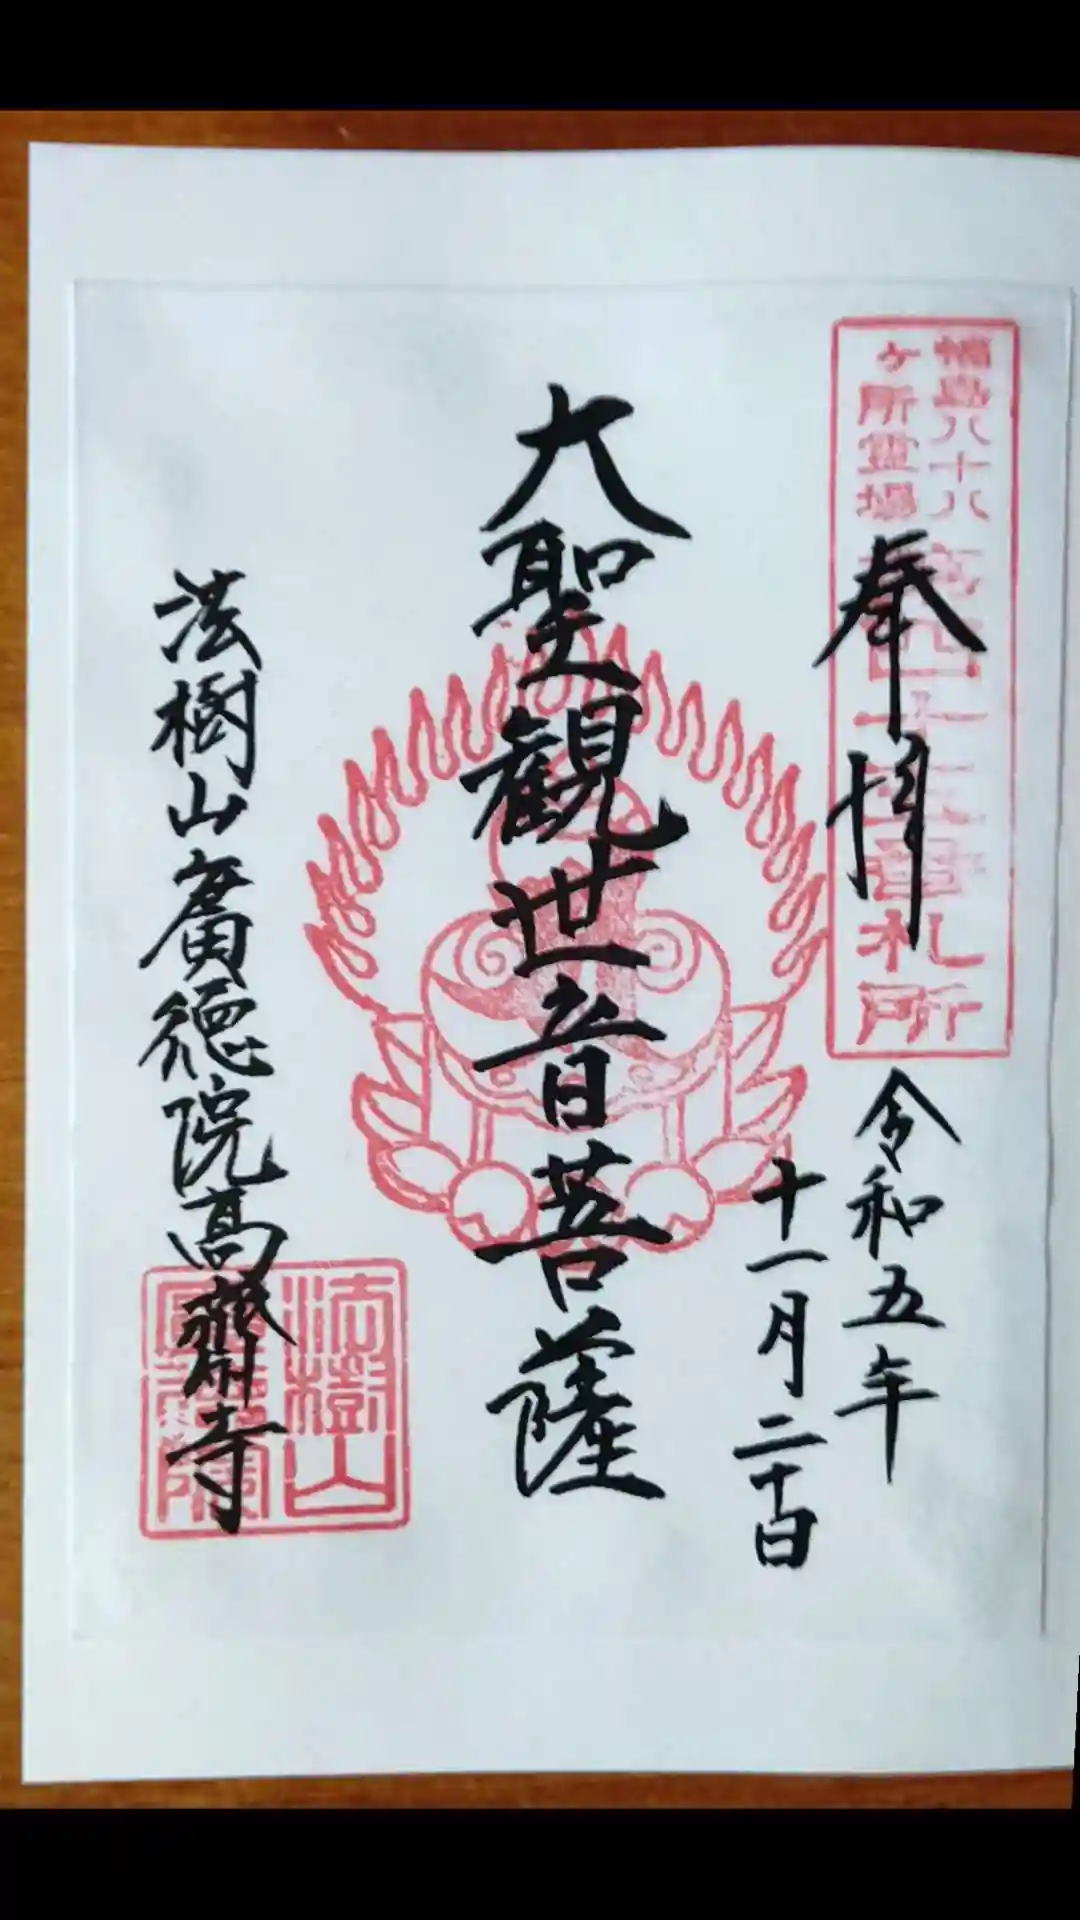 八十八
ヶ所霊場
札所
奉拝
令和五年
十一月二十日
大聖観世音菩薩
法樹山廣徳院高齋寺
法樹山